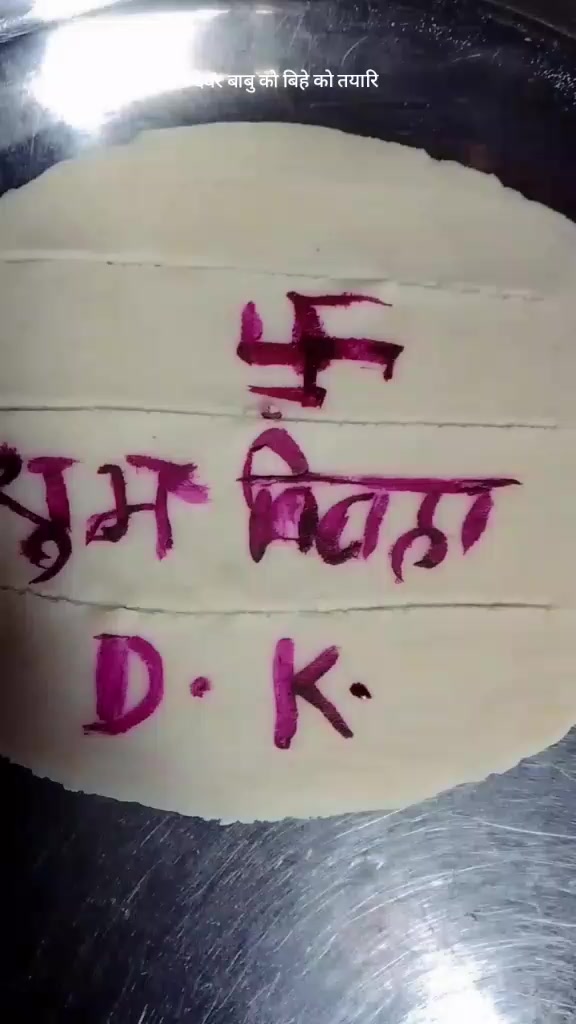 बाबु को बिहे को तयारि
शुभ विवहा
D. K.